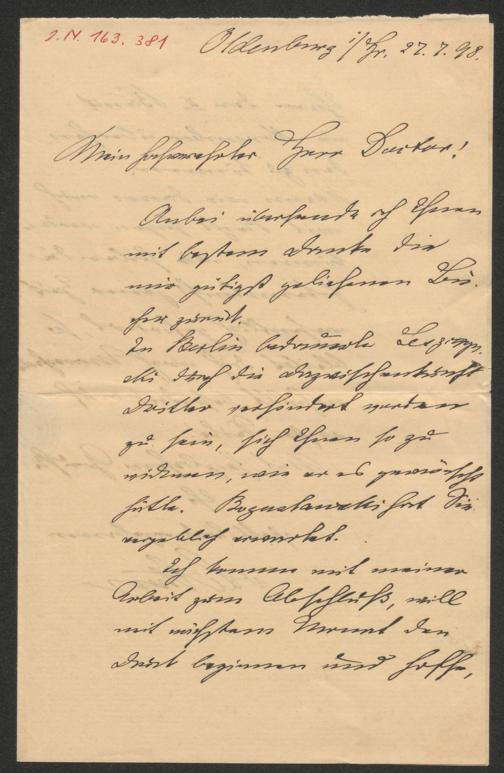 I.N. 163.381
Oldenburg i/Gr. 27.7.98.
Mein hochverehrter Herr Doctor!
Anbei übersende ich Ihnen
mit bestem Danke die
mir gütigst geliehenen Bü-
cher zurück.
In Berlin bedauerte
durch die Dazwischenkunft
Dritter verhindert worden
zu sein, sich Ihnen so zu
widmen, wie er es gewünscht
hätte. hat Sie
vergeblich erwartet.
Ich komme mit meiner
Arbeit zum Abschluß, will
mit nächstem Monat den
Druck beginnen und hoffe,